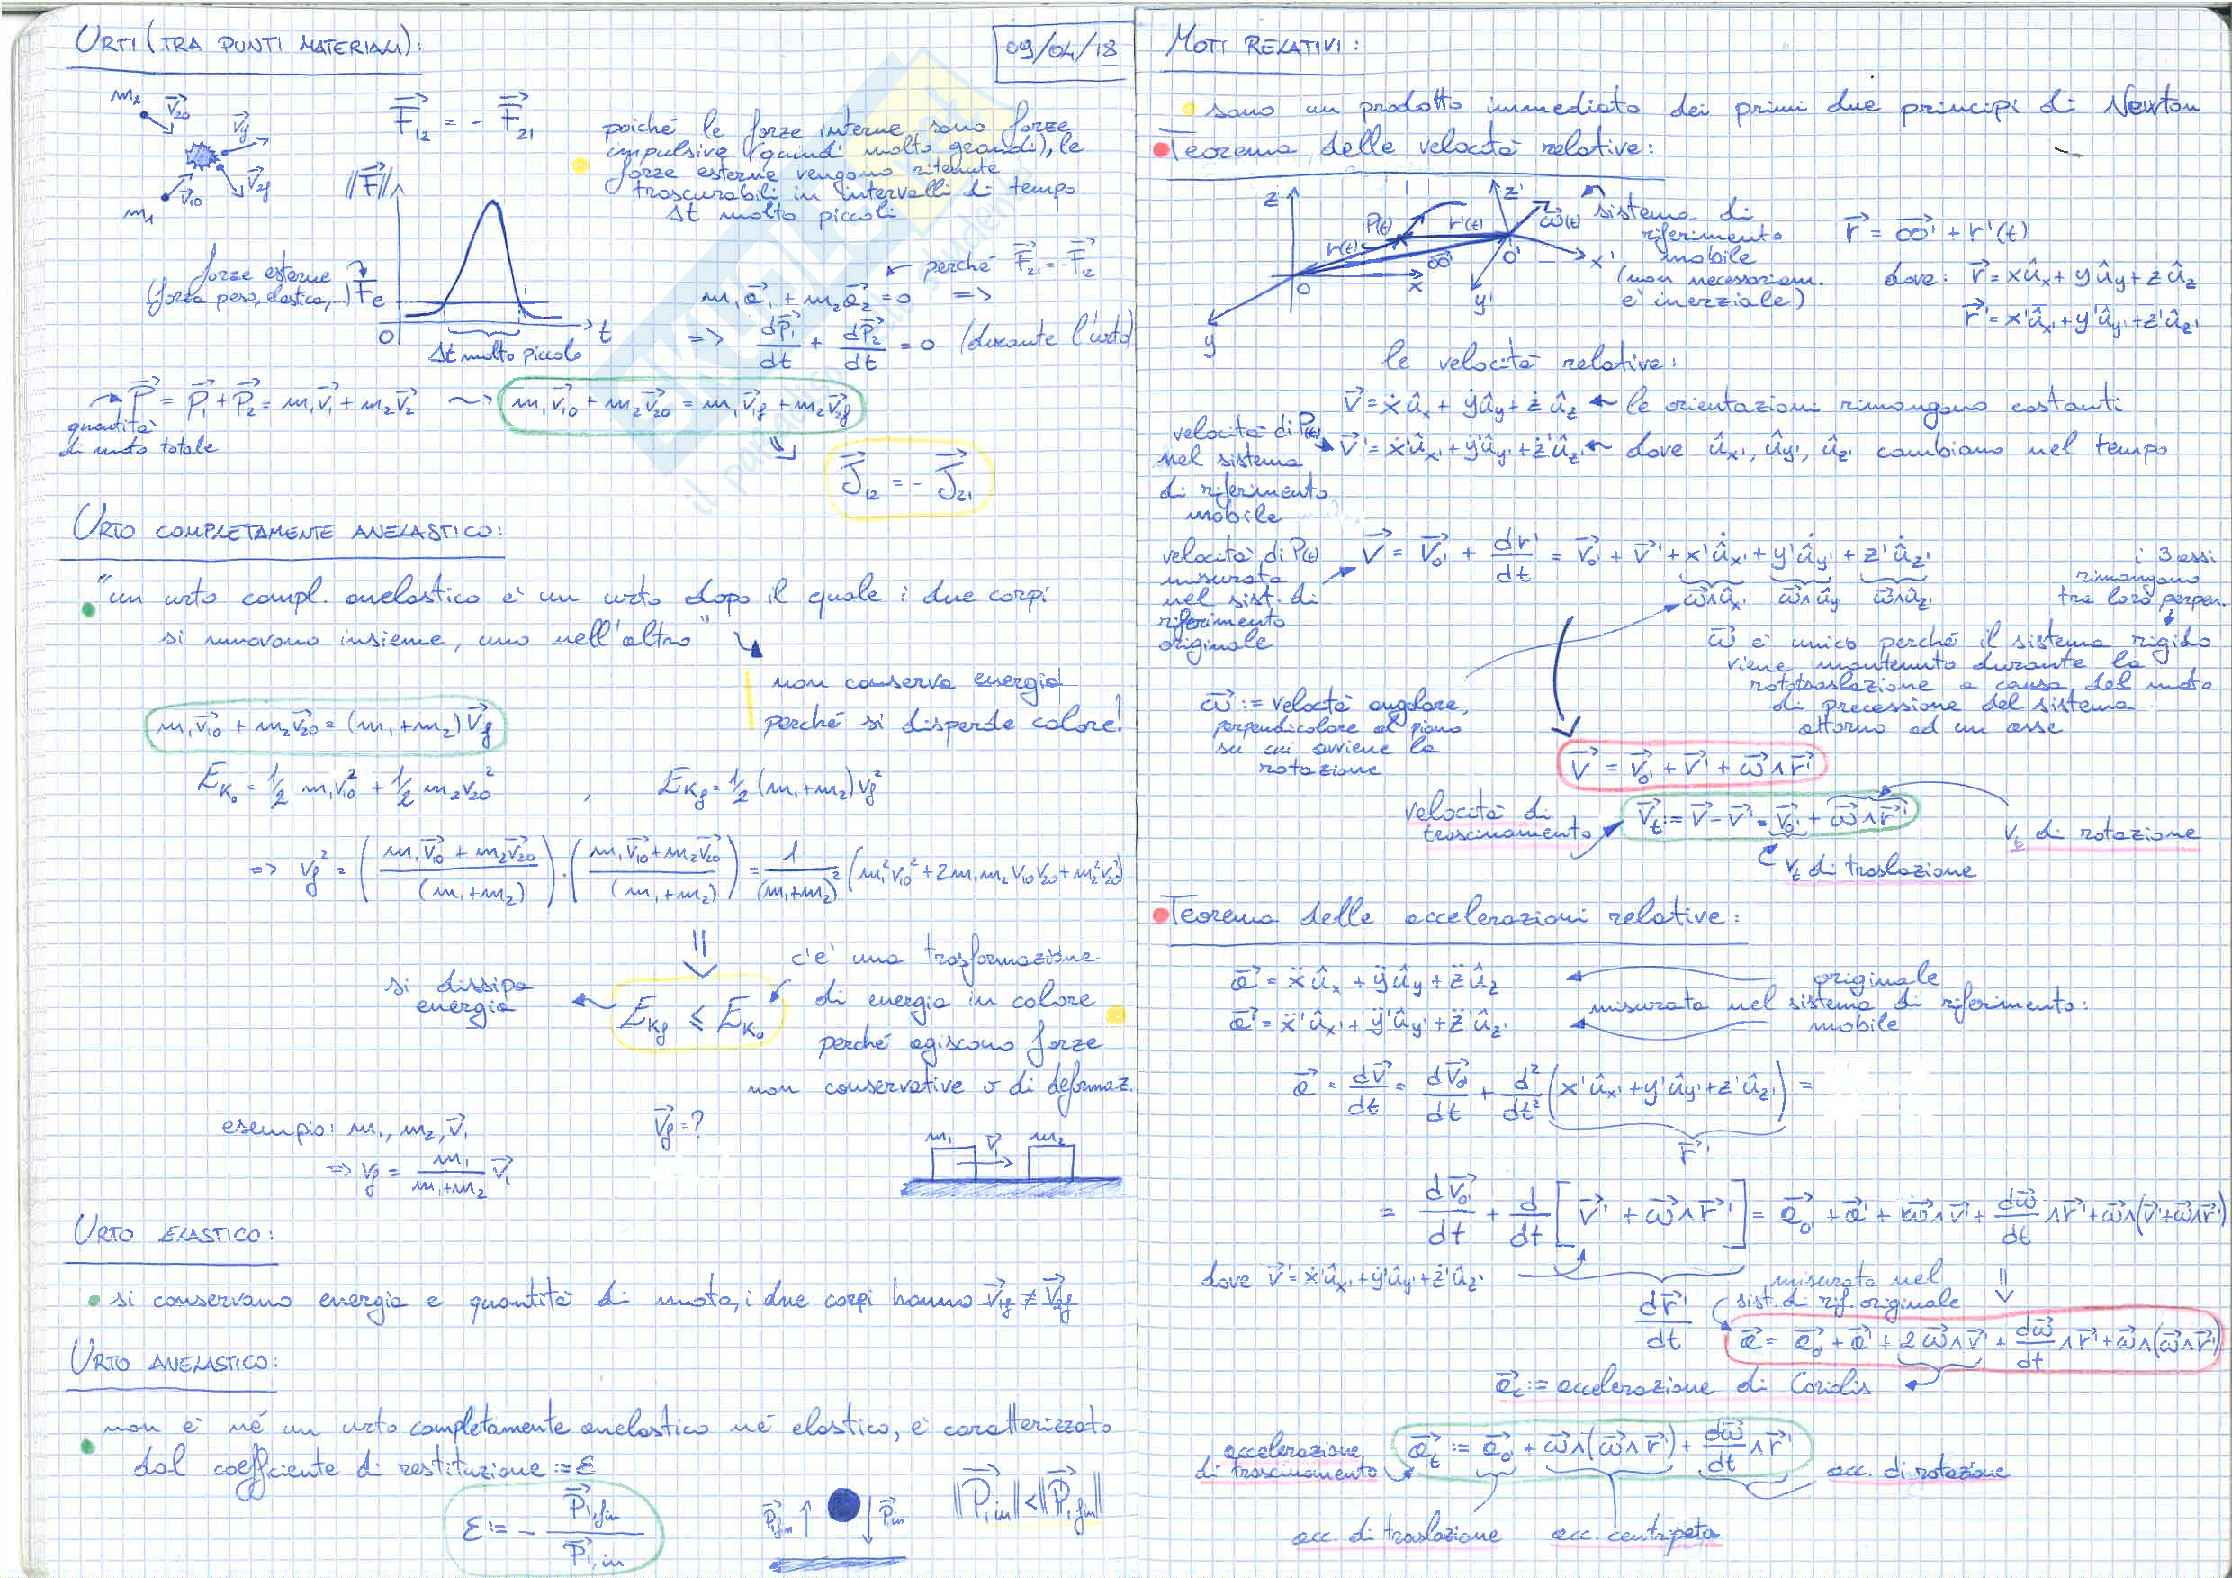 URTI (TRA PUNTI MATERIALI):
09/04/18
m₂ v⃗₂₀
v⃗₁f
v⃗₂f
m₁ v⃗₁₀
F⃗₁₂ = - F⃗₂₁
poiché le forze interne sono forze
impulsive (quindi molto grandi), le
forze esterne vengono ritenute
trascurabili in intervalli di tempo
Δt molto piccoli
||F⃗||
forze esterne
(forza peso, elastica,...) Fe
0
t
Δt molto piccolo
perché F⃗₂₁ = -F⃗₁₂
m₁a⃗₁ + m₂a⃗₂ = 0 =>
=> dP⃗₁/dt + dP⃗₂/dt = 0 (durante l'urto)
P⃗ = P⃗₁ + P⃗₂ = m₁v⃗₁ + m₂v⃗₂ ~> m₁v⃗₁₀ + m₂v⃗₂₀ = m₁v⃗₁f + m₂v⃗₂f
quantità
di moto totale
J⃗₁₂ = - J⃗₂₁
URTO COMPLETAMENTE ANELASTICO:
"un urto compl. anelastico è un urto dopo il quale i due corpi
si muovono insieme, uno nell'altro"
non conserva energia
perché si disperde calore!
m₁v⃗₁₀ + m₂v⃗₂₀ = (m₁+m₂) v⃗f
E_K₀ = 1/2 m₁v₁₀² + 1/2 m₂v₂₀² , E_Kf = 1/2 (m₁+m₂) vf²
=> vf² = ( (m₁v⃗₁₀ + m₂v⃗₂₀)/(m₁+m₂) ) · ( (m₁v⃗₁₀ + m₂v⃗₂₀)/(m₁+m₂) ) = 1/(m₁+m₂)² (m₁²v₁₀² + 2m₁m₂v₁₀v₂₀ + m₂²v₂₀²)
si dissipa
energia
E_Kf ≤ E_K₀
c'è una trasformazione
di energia in calore
perché agiscono forze
non conservative o di deformaz.
esempio: m₁, m₂, v⃗₁ v⃗f = ?
=> vf = m₁/(m₁+m₂) v⃗₁
m₁ v⃗₁ m₂
URTO ELASTICO:
si conservano energia e quantità di moto, i due corpi hanno v⃗₁f ≠ v⃗₂f
URTO ANELASTICO:
non è né un urto completamente anelastico né elastico, è caratterizzato
dal coefficiente di restituzione := ε
ε := - P⃗₁,fin / P⃗₁,in
P⃗fin P⃗in
||P⃗₁,in|| < ||P⃗₁,fin||
MOTI RELATIVI:
sono un prodotto immediato dei primi due principi di Newton
Teorema delle velocità relative:
z
P(t)
r(t)
r'(t)
z'
ω⃗(t)
OO'
O
x
y
O'
x'
y'
sistema di
riferimento
mobile
(non necessariam.
è inerziale)
r⃗ = OO⃗' + r'(t)
dove: r⃗ = xû_x + yû_y + zû_z
r⃗' = x'û_x' + y'û_y' + z'û_z'
le velocità relative:
v⃗ = ẋû_x + ẏû_y + żû_z ← le orientazioni rimangono costanti
velocità di P(t)
nel sistema
di riferimento
mobile
v⃗' = ẋ'û_x' + ẏ'û_y' + ż'û_z' ← dove û_x', û_y', û_z' cambiano nel tempo
velocità di P(t)
misurata
nel sist. di
riferimento
originale
v⃗ = v⃗₀' + dr⃗'/dt = v⃗₀' + v⃗' + x'û̇_x' + y'û̇_y' + z'û̇_z'
ω⃗∧û_x' ω⃗∧û_y' ω⃗∧û_z'
i 3 assi
rimangono
tra loro perpen.
ω⃗ è unico perché il sistema rigido
viene mantenuto durante la
rototraslazione a causa del moto
di precessione del sistema
attorno ad un asse
ω⃗ := velocità angolare,
perpendicolare al piano
su cui avviene la
rotazione
v⃗ = v⃗₀' + v⃗' + ω⃗∧r⃗'
velocità di
trascinamento
v⃗t := v⃗ - v⃗' = v⃗₀' + ω⃗∧r⃗'
vt di rotazione
vt di traslazione
Teorema delle accelerazioni relative:
a⃗ = ẍû_x + ÿû_y + z̈û_z
a⃗' = ẍ'û_x' + ÿ'û_y' + z̈'û_z'
originale
misurata nel sistema di riferimento:
mobile
a⃗ = dv⃗/dt = dv⃗₀'/dt + d²/dt² (x'û_x' + y'û_y' + z'û_z') =
r⃗'
= dv⃗₀'/dt + d/dt [v⃗' + ω⃗∧r⃗'] = a⃗₀' + a⃗' + ω⃗∧v⃗' + dω⃗/dt ∧r⃗' + ω⃗∧(v⃗' + ω⃗∧r⃗')
dove v⃗' = ẋ'û_x' + ẏ'û_y' + ż'û_z'
dr⃗'/dt
misurata nel
sist. di rif. originale
a⃗ = a⃗₀' + a⃗' + 2ω⃗∧v⃗' + dω⃗/dt ∧r⃗' + ω⃗∧(ω⃗∧r⃗')
a⃗c := accelerazione di Coriolis
accelerazione
di trascinamento
a⃗t := a⃗₀' + ω⃗∧(ω⃗∧r⃗') + dω⃗/dt ∧r⃗'
acc. di rotazione
acc. di traslazione
acc. centripeta